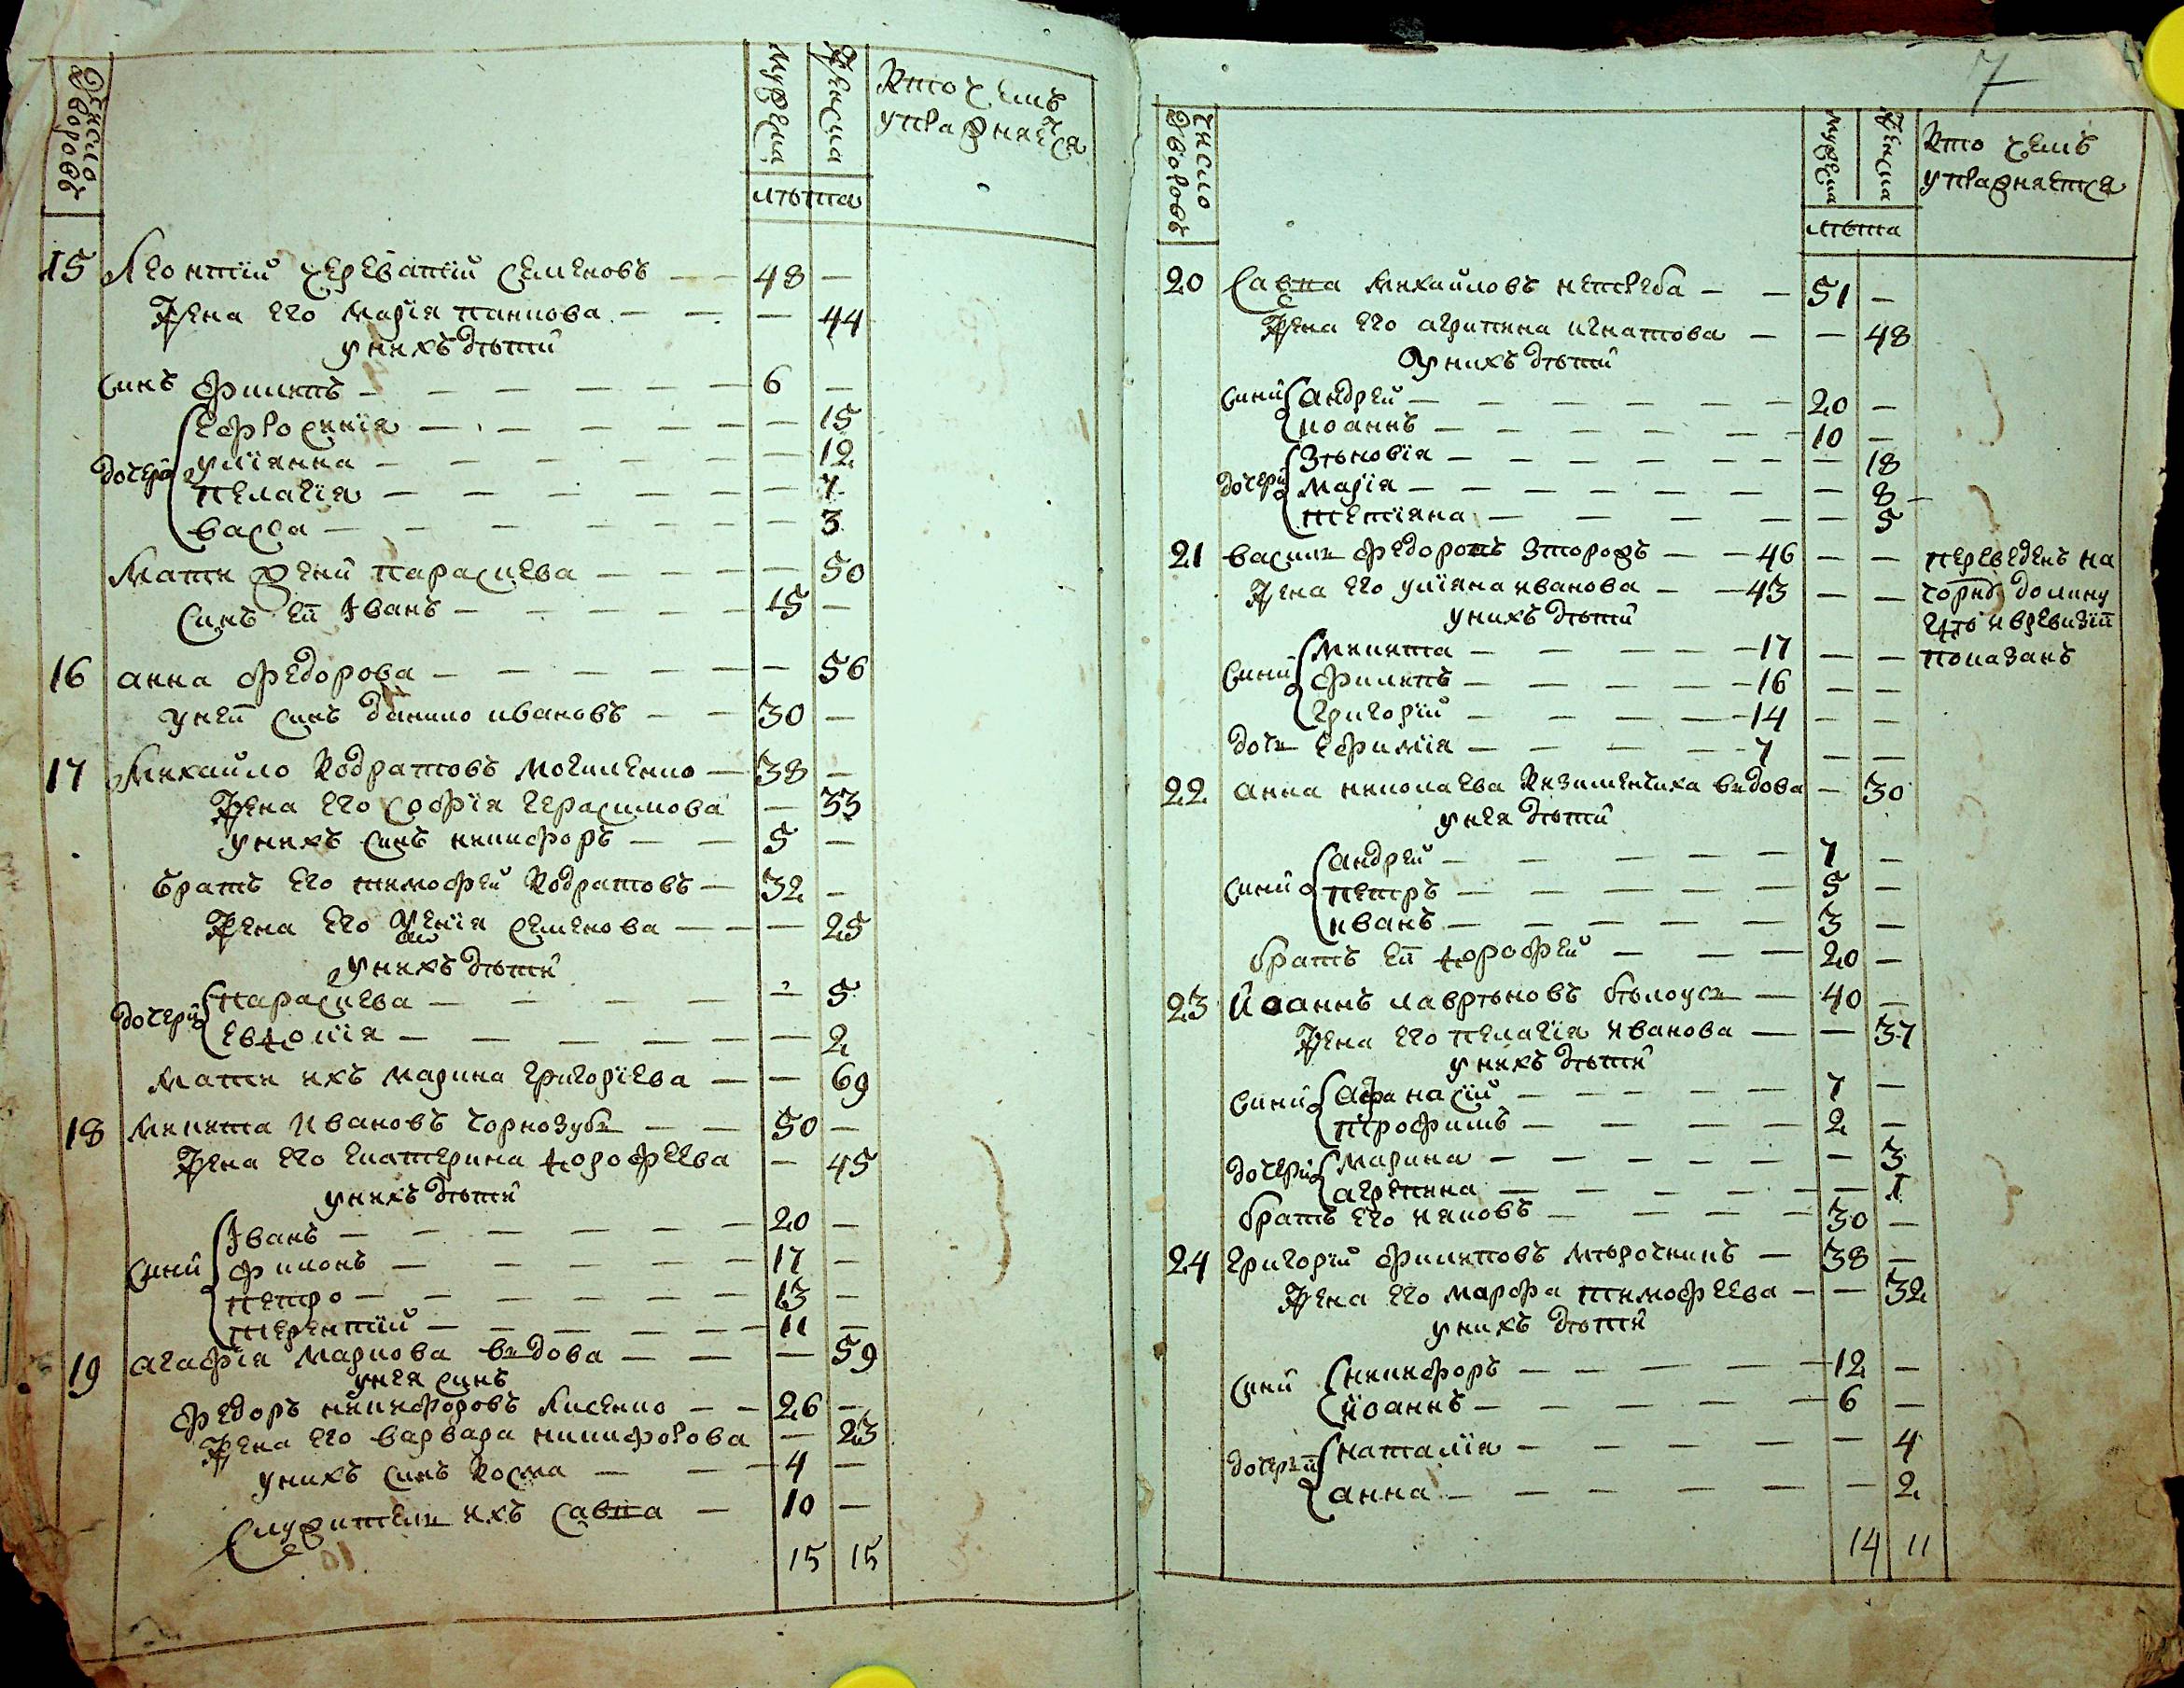 Число дворовъ
мужска
женска
лѣта
Кто чемъ
упражняется
15 Леонтій Череватій Семеновъ — — 48 —
Жена его Марія Панкова — — — 44
у нихъ дѣти
синъ Филипъ — — — — — 6 —
дочерй Ефросинія — — — — — — 15
Уліянна — — — — — — 12
Пелагія — — — — — — 7
Васса — — — — — — 3
Мати Параскева — — — — 50
Синъ ей Іванъ — — — — — 15 —
16 Анна Федорова — — — — — — 56
у ней синъ Данило Ивановъ — — 30 —
17 Михайло Кодратовъ Могиленко — 38 —
Жена его Софія Герасимова — 33
у нихъ синъ Никифоръ — — 5 —
братъ его Тимофей Кодратовъ — 32 —
Жена его Семенова — — — 25
у нихъ дѣти
дочерй Параскева — — — — — 5
Евдокія — — — — — — 2
Мати ихъ Марина Григоріева — — 69
18 Микита Ивановъ Чорнозубъ — — 50 —
Жена его Екатерина Дорофеева — 45
у нихъ дѣти
синй Іванъ — — — — — — 20 —
Филонъ — — — — — 17 —
Петро — — — — — — 13 —
Терентій — — — — — — 11 —
19 Агафія Маркова вдова — — — 59
у нея синъ
Федоръ Никифоровъ Лисенко — — 26 —
Жена его Варвара Никифорова — 23
у нихъ синъ Косма — — — 4 —
Служитель ихъ Савка — 10 —
15 15
7
Число дворовъ
мужска
женска
лѣта
Кто чемъ
упражняется
20 Савка Михайловъ Нетреба — — 51 —
Жена его Агрипена Игнатова — — 48
У нихъ дѣти
синй Андрей — — — — — — 20 —
Иоаннъ — — — — — — 10 —
дочерй Зѣновія — — — — — — — 18
Марія — — — — — — — 8
Тетіяна — — — — — 5
21 Василь Федоровъ Сторожъ — — 46 — — переведенъ на
Жена его Уліяна Иванова — — 43 — — Чорну долину
у нихъ дѣти
где и в ревизіи
синй Микита — — — — — 17 — — показанъ
Филипъ — — — — — 16 — —
Григорій — — — — — 14 — —
дочь Ефимія — — — — — 7 — —
22 Анна Николаева Кизименчиха вдова — 30
у нея дѣти
синй Андрей — — — — — 7 —
Петръ — — — — — 5 —
Иванъ — — — — — 3 —
братъ ей Дорофей — — — 20 —
23 Иоаннъ Лаврѣновъ Бѣлоусъ — 40 —
Жена его Пелагія Иванова — — 37
у нихъ дѣти
синй Афанасій — — — — — 7 —
Трофимъ — — — — — 2 —
дочерй Марина — — — — — — 3
Агрепина — — — — — — 1
братъ его Яковъ — — — — — 30 —
24 Григорій Филиповъ Мѣрочникъ — 38 —
Жена его Марфа Тимофеева — — 32
у нихъ дѣти
синй Никифоръ — — — — — 12 —
Иоаннъ — — — — — 6 —
дочерй Наталія — — — — — 4
Анна — — — — — — 2
14 11